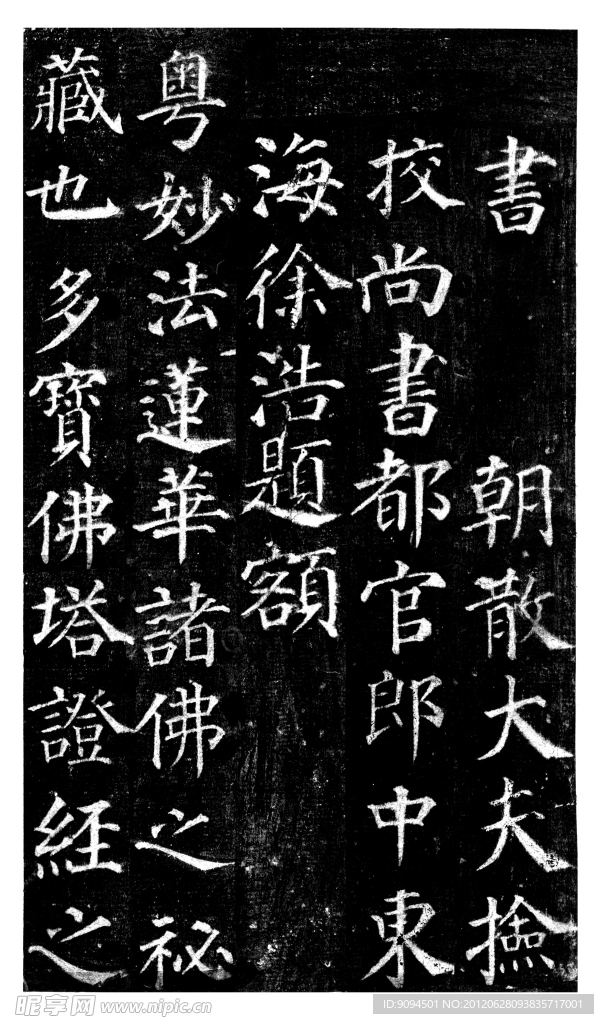 書 朝散大夫撿
挍尚書都官郎中東
海徐浩題額
粵妙法蓮華諸佛之祕
藏也多寶佛塔證經之
昵享网 www.nipic.cn
ID:9094501 NO:20120628093835717001